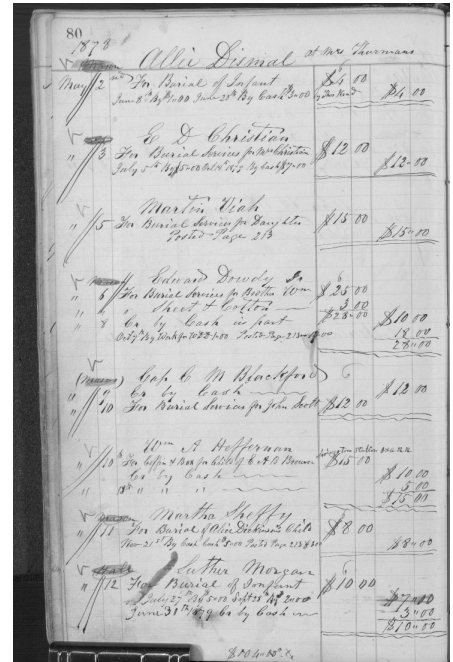 80
1878
Allie Dismal at Mrs Thurmans
May 2nd For Burial of Infant $4 00
June 8th By $1=00 June 28th By Cash $3=00 $4 00
E D Christian
" 3 For Burial Services for Mrs Christian $12 00
July 5th By $5=00 By Cash $7=00 $12=00
Martin
" 5 For Burial Services for Daughter $15 00
Posted Page 213 $15=00
Edward Dowdy
" 6 For Burial Services for $25 00
" " " Sheet & Cotton 3 00
" 8 Cr by Cash in part $28=00 $10 00
By Work for Posted Page 18 00
28=00
(Mason) Cap C M Blackford
" 9 Cr by Cash $12 00
" 10 For Burial Services for John Scott $12 00
Wm A Hefferman
" 10th For Coffin & Box for Child of $15 00
Cr By Cash $10 00
" 18th " " " 5 00
$15 00
Martha Sheffy
" 11 For Burial of Alice Dickinson Child $8 00
Nov 21st By Cash Posted Page 213 $8=00
Luther Morgan
" 12 For Burial of Infant $10 00
July 27th By $5=00 Sept 28th By 2=00 $7=00
June 31th 1879 Cr by Cash 3=00
$10=00